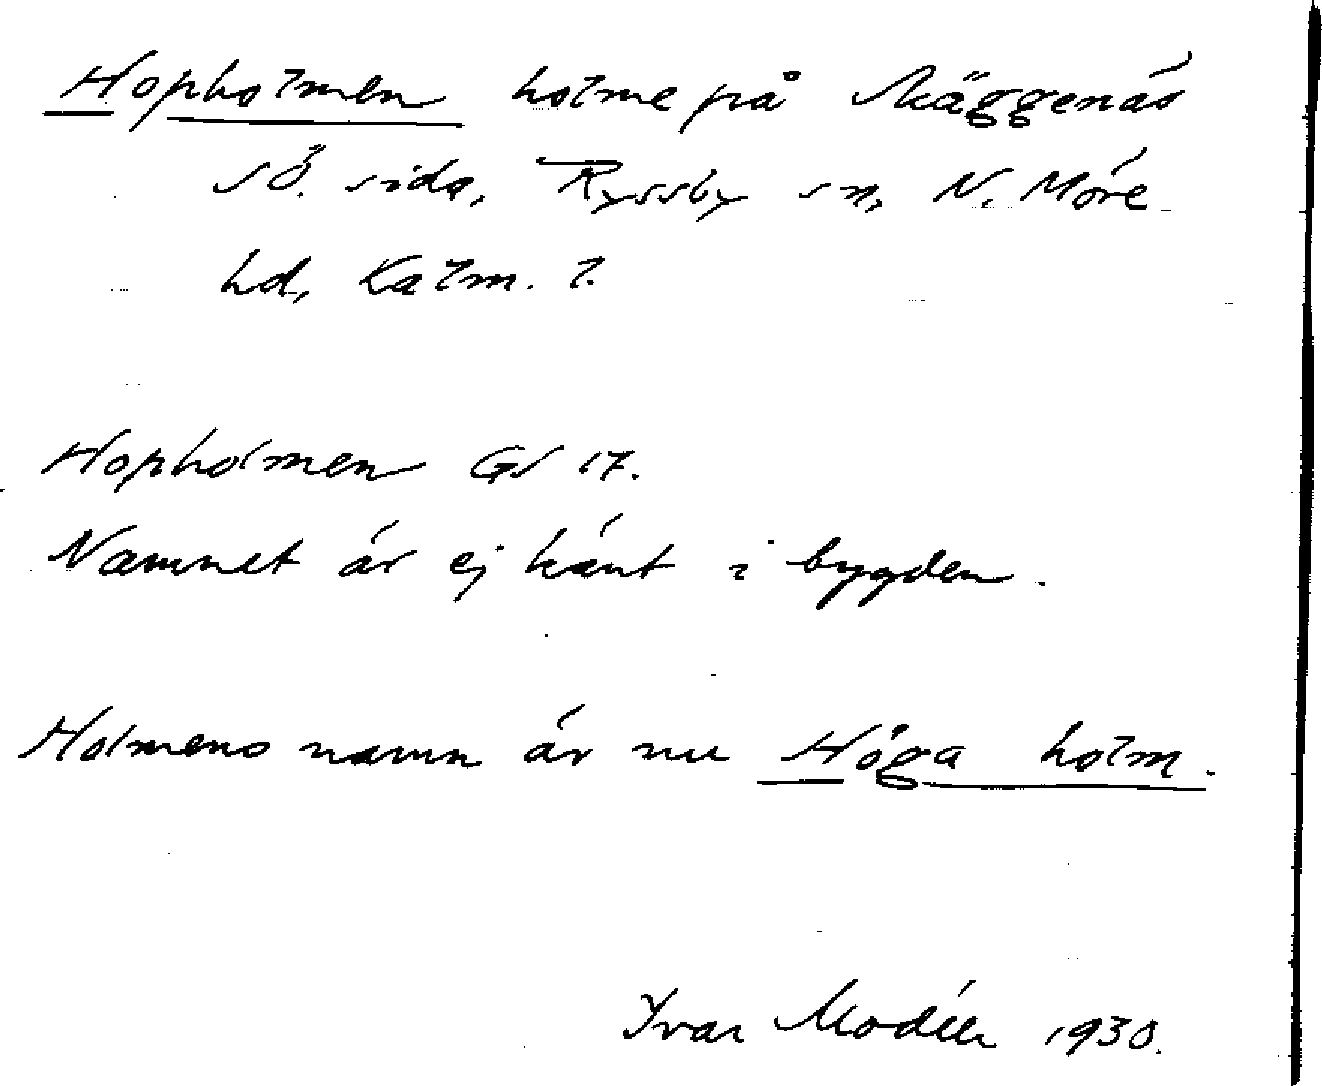 Hopholmen holme på Skäggenäs
SÖ. sida, Ryssby sn, N. Möre
hd, Kalm. l.
Hopholmen GS 17.
Namnet är ej känt i bygden.
Holmens namn är nu Höga holm.
Ivar Modéer 1930.